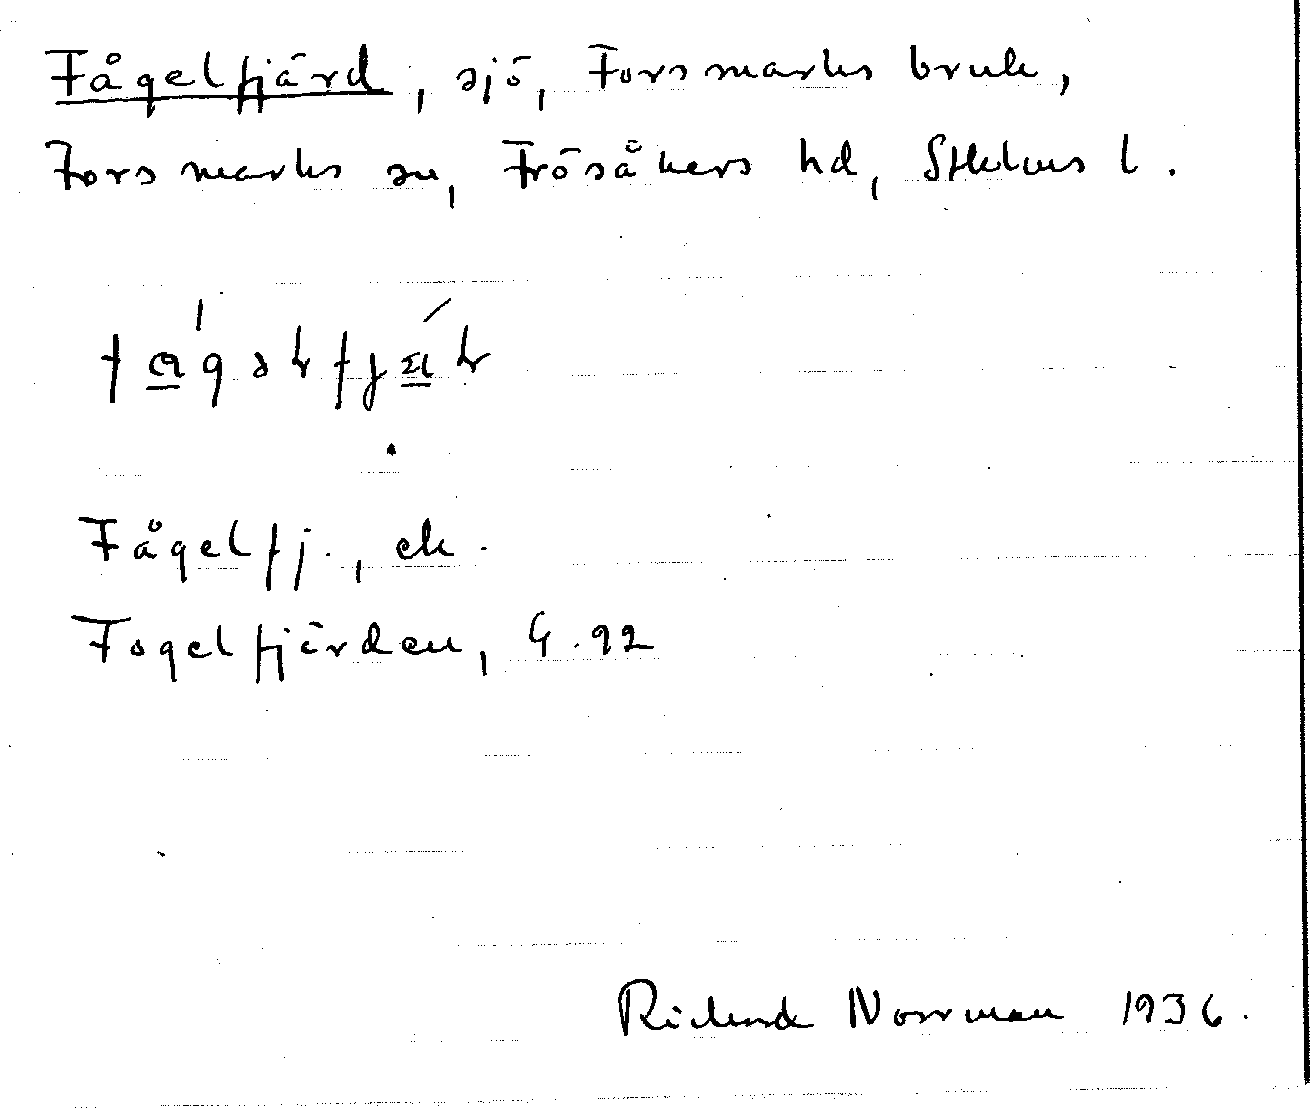 Fågelfjärd, sjö, Forsmarks bruk,
Forsmarks sn, Frösåkers hd, Sthlms l.
Fågelfj., ek.
Fogelfjärden, G. 92
Rickard Norrman 1936.